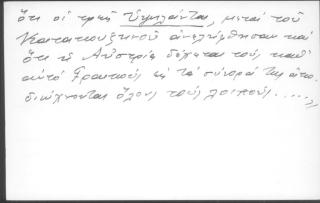 ὅτι οἱ τρεῖς Ὑψηλάνται, μετὰ τοῦ
Καντακουζηνοῦ ἀνεχώρησαν καὶ
ὅτι ἡ Αὐστρία δέχεται τοὺς καθ'
αὑτὸ Γραικοὺς εἰς τὰ σύνορά της ἀπο
διώχνοντας ὅλους τοὺς λοιποὺς.....»